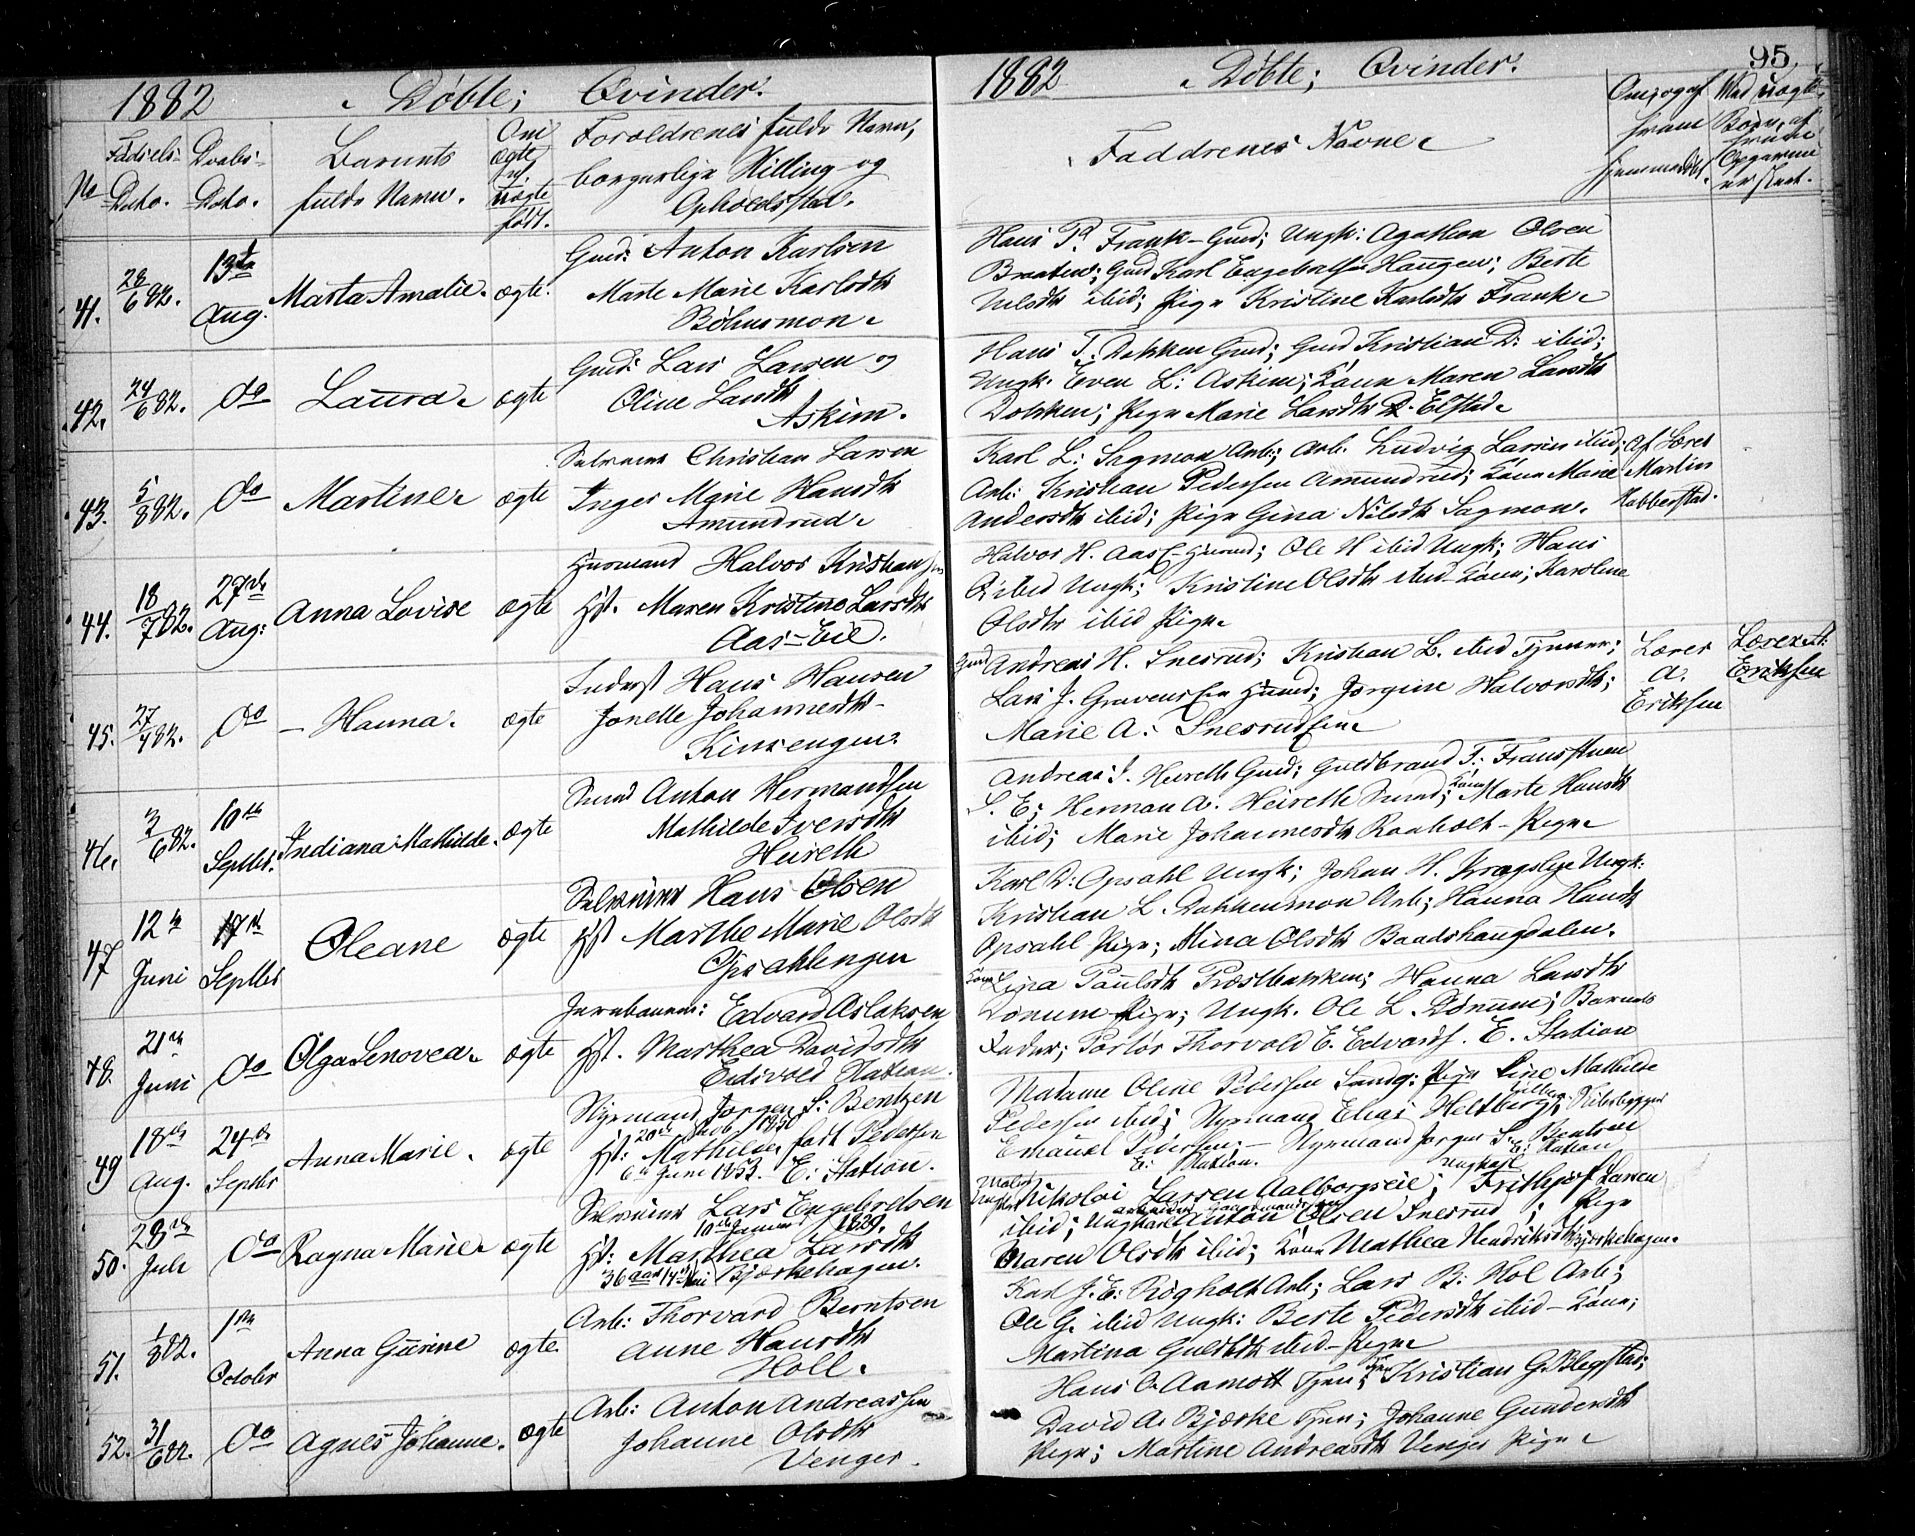 1882 Døbte; Qvinder.
No
Fødsels-
Dato.
Daabs-
Dato.
Barnets
fulde Navn.
Om
ægte
el.
uægte
født.
Forældrenes fulde Navn,
borgerlige Stilling og
Opholdssted.
41. 28/6 82. 13de Aug. Marta Amalie. ægte.
Gmd: Anton Karlsen
Marte Marie Karlsdtr
Böhnsmon.
42. 24/6 82. Do Laura. ægte
Gmd: Lars Larsen og
Oline Larsdtr
Askim.
43. 5/8 82. Do Martine. ægte
Selveier Christian Larsen
Inger Marie Hansdtr
Amundrud.
44. 18/7 82. 27de Aug: Anna Lovise ægte
Husmand Halvor Kristiansen
Hst. Maren Kristine Larsdtr
Aas-Eie.
45. 27/4 82. Do Hanna. ægte
Inderst Hans Hansen
Jonette Johannesdtr
46. 2/6 82. 10de Septbr. Indiana Mathilde. ægte
Smed Anton Hermandsen
Mathilde Iversdtr
Heireth
47 12te Juni 17de Septbr Oleane ægte
Selveier Hans Olsen
Hst Marthe Marie Olsdtr
Opsahlengen
48. 21de Juni Do Olga Lenovea. ægte
Edvard Aslaksen
Hst. Marthea Davidsdtr
Eidsvold Station.
49 18de Aug. 24de Septbr Anna Marie. ægte
Styrmand Jørgen S: Bentzen
20de Feb. 1850
Hst: Mathilde født Pedersen
6te Juni 1853. E: Station.
50. 28de Juli Do Ragna Marie. ægte
Selveier Lars Engebretsen
10de Januar 1829.
Hst: Marthea Larsdtr
36 aar 14de Mai Bjørkehagen.
51. 1/8 82. 1ste October Anna Gurine ægte.
Arb: Thorvard Berntsen
Anne Hansdtr
Holl.
52. 31/6 82. Do Agnes Johanne. ægte
Arb: Anton Andreassen
Johanne Olsdtr
Venger.
1882 Døbte; Qvinder. 95
Faddrenes Navne
Om; og af
hvem
hjemmedøbt.
Ved uægte
Børn, af
hvem
Opgaven
er skeet.
Hans P. Frank-Gmd; Ungk: Agathon Olsen
Braaten; Gmd Karl Engebretsen Haugen; Berte
Nilsdtr ibid; Pige Kristine Karlsdtr Frank
Hans T. Dokken Gmd; Gmd Kristian D: ibid;
Ungk. Even L: Askim; Kone Maren Larsdtr
Dokken; Pige Marie Larsdtr Elstad
Karl L: Sagmon Arb; Arb. Ludvig Larsen ibid;
Arb: Kristian Pedersen Amundrud; Kone Marie
Andersdtr ibid; Pige Gina Nilsdtr Sagmon.
Af Lærer
Martin
Habberstad.
Halvor H. Aas Husmd; Ole H ibid Ungk; Hans
O ibid Ungk; Kristine Olsdtr ibid Kone; Karoline
Olsdtr ibid Pige
Gmd Andreas H. Snesrud; Kristian L. ibid Tjener;
Lars J. Husmd; Jørgine Halvorsdtr;
Marie A.
Lærer
A.
Eriksen
Lærer A:
Eriksen
Andreas J. Heireth Gmd; Guldbrand T. Fransstuen
S. E; Herman A. Heireth Smed; Kone Marte Hansdtr
ibid; Marie Johannesdtr Raaholt-Pige
Karl D: Opsahl Ungk; Johan H. Ungk:
Kristian L. Dokkenmon Arb; Hanna Hansdtr
Opsahl Pige; Mina Olsdtr Baadshaugdalen.
Kone Lina Paulsdtr Præstbakken; Hanna Larsdtr
Dønum Pige; Ungk. Ole L. Dønum; Barnets
Fader; Thorvald E. Edvards. E. Station
Madame Oline Pedersen Sandg: Pige Line Mathilde
Pedersen ibid; Styrmand Elias Heltberg;
Emanuel Pedersen; Styrmand Jørgen S. Bentsen
E: Station. E: Station
Maler Ungk Nikolai Larsen Aalborgseie; Ungkarl Frithjof Larsen
ibid; Ungkarl Anton Olsen Snesrud; Pige
Maren Olsdtr ibid; Kone Mathea Hendriksdtr Bjørkehagen.
Karl J. E. Røgholt Arb; Lars B: Hol Arb;
Ole G. ibid Ungk: Berte Pedersdtr ibid-Kone;
Martina Guldsdtr ibid-Pige
Hans O. Aamott Tjen; Tjen Kristian G. Blegstad;
David A. Bjørke Tjen; Johanne Gundersdtr
Pige; Martine Andreasdtr Venger Pige